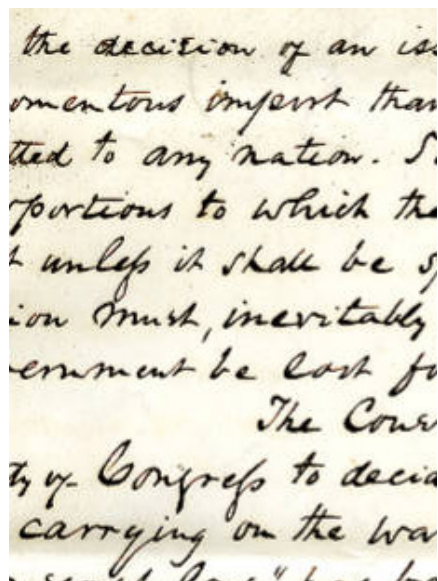 the decision of an iss
omentous import than
tted to any nation. S
oportions to which the
t unless it shall be s
ion must, inevitably
ernment be lost fo
The Cou
ty of Congress to decid
carrying on the wa